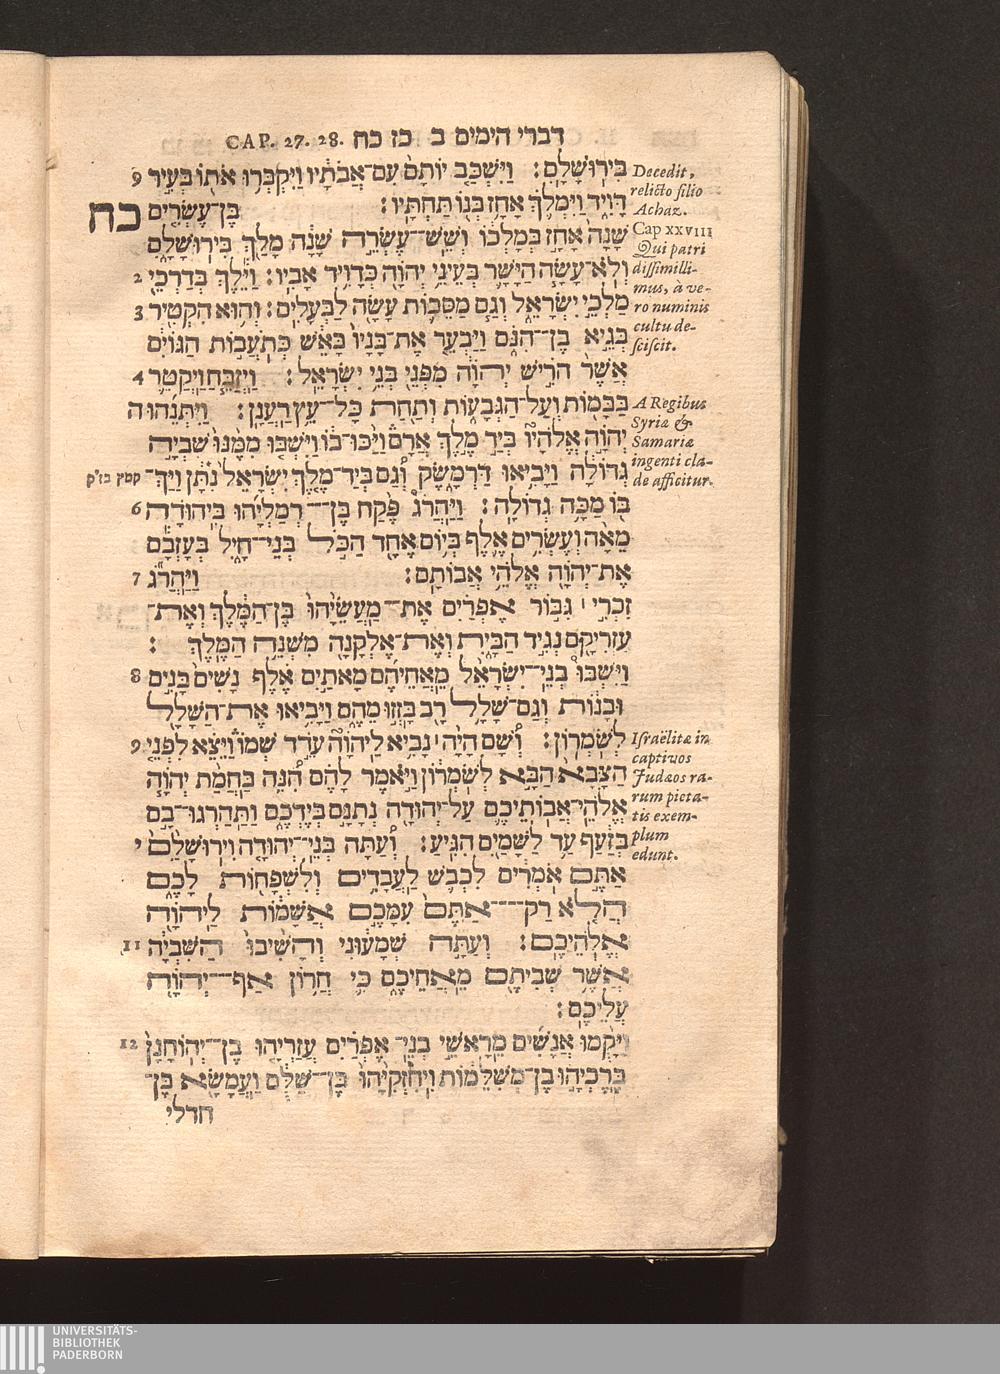 דברי הימים ב כז כח CAP. 27. 28.
בִּירֽוּשָׁלָֽםִ׃ וַיִּשְׁכַּ֤ב יוֹתָם֙ עִם־אֲבֹתָ֔יו וַיִּקְבְּר֥וּ אֹת֖וֹ בְּעִ֣יר 9
דָּוִ֑יד וַיִּמְלֹ֛ךְ אָחָ֥ז בְּנ֖וֹ תַּחְתָּֽיו׃ בֶּן־עֶשְׂרִ֤ים כח
שָׁנָה֙ אָחָ֣ז בְּמָלְכ֔וֹ וְשֵׁשׁ־עֶשְׂרֵ֣ה שָׁנָ֔ה מָלַ֖ךְ בִּירֽוּשָׁלָ֑םִ
וְלֹא־עָשָׂ֧ה הַיָּשָׁ֛ר בְּעֵינֵ֥י יְהוָ֖ה כְּדָוִ֥יד אָבִֽיו׃ וַיֵּ֕לֶךְ בְּדַרְכֵ֖י 2
מַלְכֵ֣י יִשְׂרָאֵ֑ל וְגַ֧ם מַסֵּכ֛וֹת עָשָׂ֖ה לַבְּעָלִֽים׃ וְה֥וּא הִקְטִ֖יר 3
בְּגֵ֣יא בֶן־הִנֹּ֑ם וַיַּבְעֵ֤ר אֶת־בָּנָיו֙ בָּאֵ֔שׁ כְּתֹֽעֲבוֹת֙ הַגּוֹיִ֔ם
אֲשֶׁר֙ הֹרִ֣ישׁ יְהוָ֔ה מִפְּנֵ֖י בְּנֵ֥י יִשְׂרָאֵֽל׃ וַיְזַבֵּ֧חַ וַיְקַטֵּ֛ר 4
בַּבָּמ֖וֹת וְעַל־הַגְּבָע֑וֹת וְתַ֖חַת כָּל־עֵ֥ץ רַעֲנָֽן׃ וַֽיִּתְּנֵ֞הוּ ה
יְהוָ֣ה אֱלֹהָיו֮ בְּיַ֣ד מֶ֣לֶךְ אֲרָם֒ וַיַּ֨כּוּ־ב֔וֹ וַיִּשְׁבּ֤וּ מִמֶּ֙נּוּ֙ שִׁבְיָ֣ה
גְדוֹלָ֔ה וַיָּבִ֖יאוּ דַּרְמָ֑שֶׂק וְ֠גַם בְּיַד־מֶ֤לֶךְ יִשְׂרָאֵל֙ נִתָּ֔ן וַיַּךְ־
קמץ בז״ק
בּ֖וֹ מַכָּ֥ה גְדוֹלָֽה׃ וַיַּהֲרֹג֩ פֶּ֨קַח בֶּן־רְמַלְיָ֜הוּ בִּֽיהוּדָ֗ה 6
מֵאָ֨ה וְעֶשְׂרִ֥ים אֶ֛לֶף בְּי֥וֹם אֶחָ֖ד הַכֹּ֣ל בְּנֵי־חָ֑יִל בְּעָזְבָ֕ם
אֶת־יְהוָ֖ה אֱלֹהֵ֥י אֲבוֹתָֽם׃ וַֽיַּהֲרֹ֞ג 7
זִכְרִ֣י ׀ גִּבּ֣וֹר אֶפְרַ֗יִם אֶת־מַעֲשֵׂיָ֙הוּ֙ בֶּן־הַמֶּ֔לֶךְ וְאֶת־
עַזְרִיקָ֖ם נְגִ֣יד הַבָּ֑יִת וְאֶת־אֶלְקָנָ֖ה מִשְׁנֵ֥ה הַמֶּֽלֶךְ׃
וַיִּשְׁבּוּ֩ בְנֵֽי־יִשְׂרָאֵ֨ל מֵאֲחֵיהֶ֜ם מָאתַ֣יִם אֶ֗לֶף נָשִׁים֙ בָּנִ֣ים 8
וּבָנ֔וֹת וְגַם־שָׁלָ֥ל רָ֖ב בָּזְז֣וּ מֵהֶ֑ם וַיָּבִ֥יאוּ אֶת־הַשָּׁלָ֖ל
לְשֹׁמְרֽוֹן׃ וְ֠שָׁם הָיָ֨ה ׀ נָבִ֥יא לַֽיהוָה֮ עֹדֵ֣ד שְׁמוֹ֒ וַיֵּצֵ֗א לִפְנֵ֤י 9
הַצָּבָא֙ הַבָּ֣א לְשֹׁמְר֔וֹן וַיֹּ֣אמֶר לָהֶ֔ם הִ֠נֵּה בַּחֲמַ֨ת יְהוָ֧ה
אֱלֹהֵֽי־אֲבוֹתֵיכֶ֛ם עַל־יְהוּדָ֖ה נְתָנָ֣ם בְּיֶדְכֶ֑ם וַתַּֽהַרְגוּ־בָ֣ם
בְזַ֔עַף עַ֥ד לַשָּׁמַ֖יִם הִגִּֽיעַ׃ וְ֠עַתָּה בְּנֵֽי־יְהוּדָ֤ה וִירֽוּשָׁלִַ֙ם֙ י
אַתֶּ֣ם אֹמְרִ֔ים לִכְבֹּ֛שׁ לַעֲבָדִ֥ים וְלִשְׁפָח֖וֹת לָכֶ֑ם
הֲלֹ֤א רַק־אַתֶּם֙ עִמָּכֶ֣ם אֲשָׁמ֔וֹת לַיהוָ֖ה
אֱלֹהֵיכֶֽם׃ וְעַתָּ֣ה שְׁמָע֔וּנִי וְהָשִׁ֙יבוּ֙ הַשִּׁבְיָ֔ה 11
אֲשֶׁ֥ר שְׁבִיתֶ֖ם מֵאֲחֵיכֶ֑ם כִּ֛י חֲר֥וֹן אַף־יְהוָ֖ה
עֲלֵיכֶֽם׃
וַיָּקֻ֨מוּ אֲנָשִׁ֜ים מֵרָאשֵׁ֣י בְנֵֽי־אֶפְרַ֗יִם עֲזַרְיָ֤הוּ בֶן־יְהֽוֹחָנָן֙ 12
בֶּרֶכְיָ֣הוּ בֶן־מְשִׁלֵּמ֔וֹת וִֽיחִזְקִיָּ֙הוּ֙ בֶּן־שַׁלֻּ֔ם וַעֲמָשָׂ֖א בֶּן־
חדלי
Decedit,
relicto filio
Achaz.
Cap xxviii
Qui patri
dissimilli-
mus, à ve-
ro numinis
cultu de-
sciscit.
A Regibus
Syriæ &
Samariæ
ingenti cla-
de afficitur.
Israëlitæ in
captivos
Judæos ra-
rum pieta-
tis exem-
plum
edunt.
UNIVERSITÄTS-
BIBLIOTHEK
PADERBORN